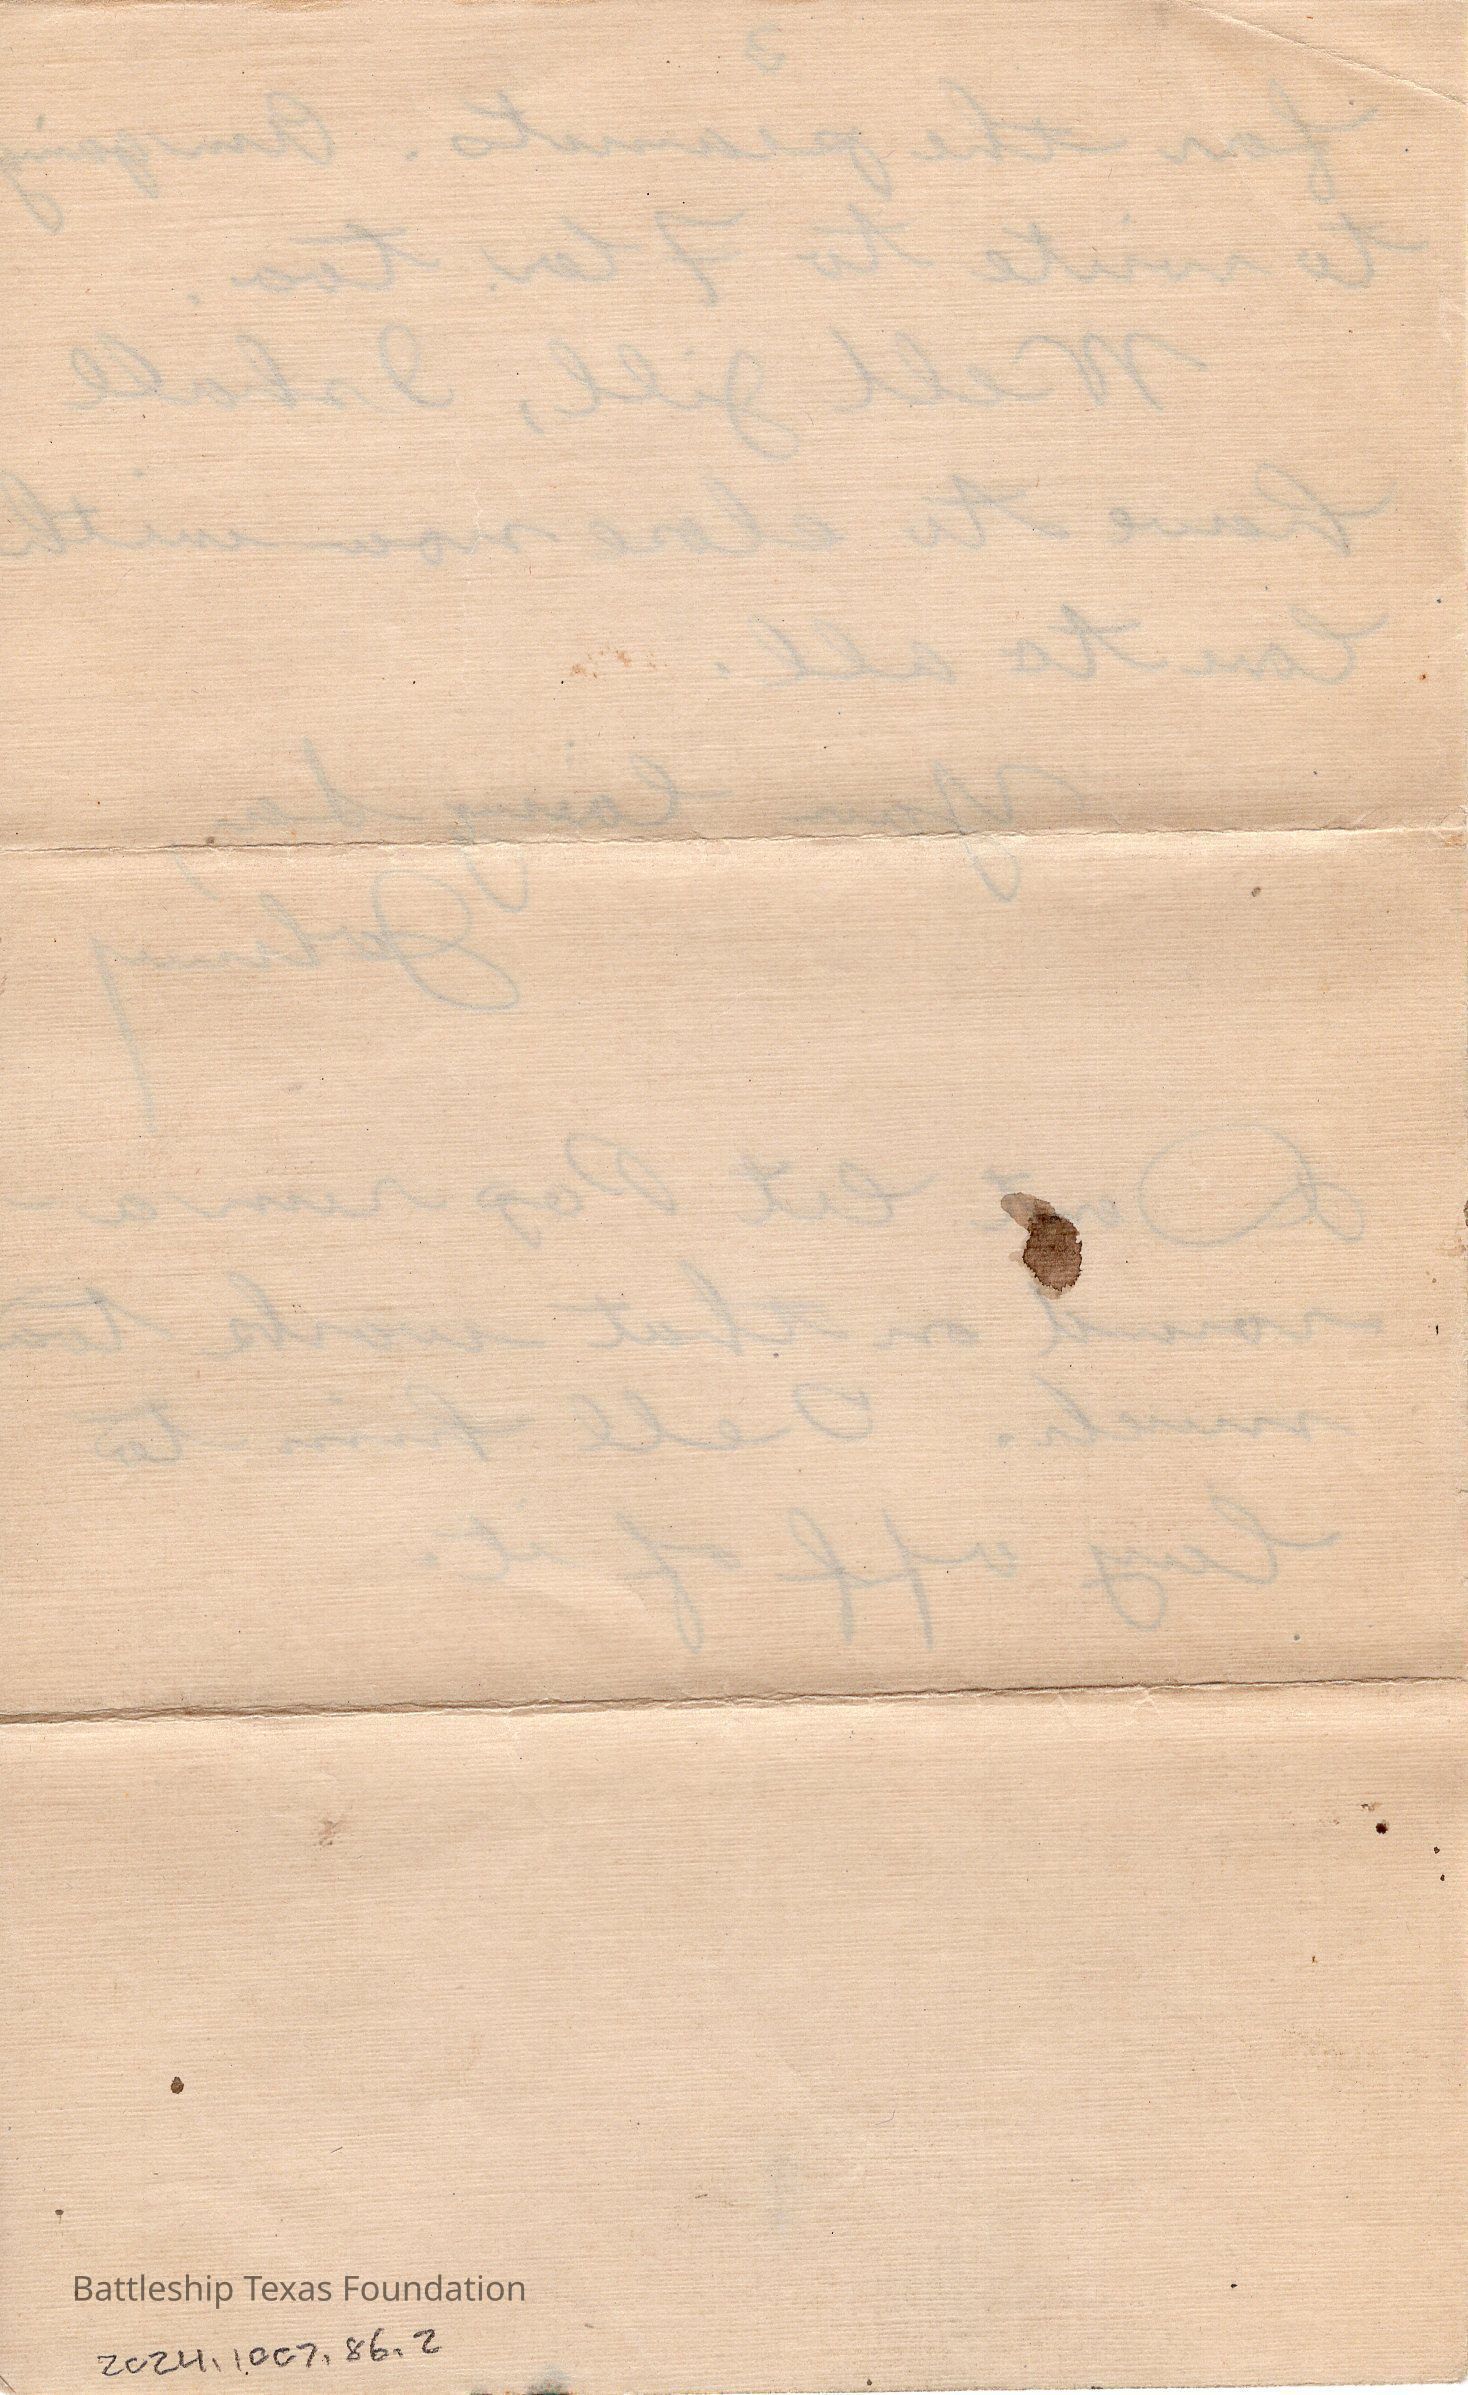 3
for the peanuts. Am going
to write to Flo. too.
Well Jill, I shall
have to close now with
love to all.
Your loving
Johnny
Dont let Pop run a-
round on that work too
much. Tell him to
lay off of it.
Battleship Texas Foundation
2024.1007.86.2